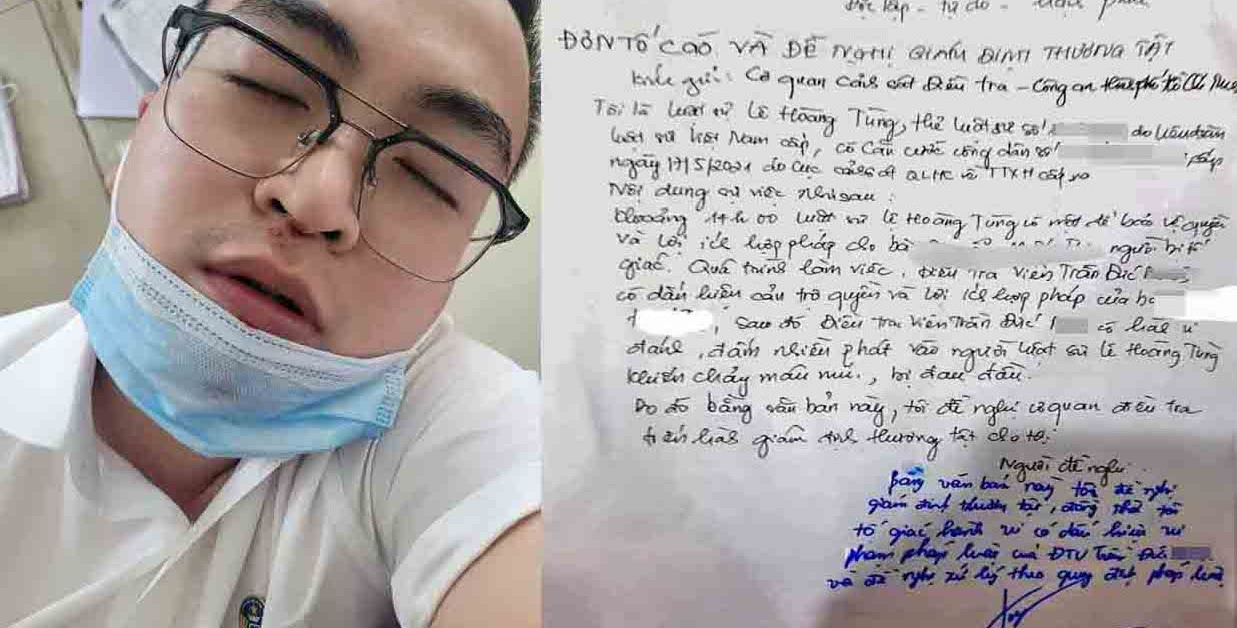 Độc lập - tự do - Hạnh phúc
ĐƠN TỐ CÁO VÀ ĐỀ NGHỊ GIÁM ĐỊNH THƯƠNG TẬT
Kính gửi: Cơ quan Cảnh sát Điều tra - Công an thành phố Hồ Chí Minh
Tôi là luật sư Lê Hoàng Tùng, thẻ luật sư số do Liên đoàn
luật sư Việt Nam cấp, có Căn cước công dân số cấp
ngày 17/5/2021 do Cục cảnh sát QLHC về TTXH cấp
Nội dung sự việc như sau:
Khoảng 14h00 luật sư Lê Hoàng Tùng có mặt để bảo vệ quyền
và lợi ích hợp pháp cho bà người bị tố
giác. Quá trình làm việc, Điều tra viên Trần Đức
có dấu hiệu cản trở quyền và lợi ích hợp pháp của bà
, sau đó Điều tra viên Trần Đức có hành vi
đánh, đấm nhiều phát vào người luật sư Lê Hoàng Tùng
khiến chảy máu mũi, bị đau đầu.
Do đó bằng văn bản này, tôi đề nghị cơ quan điều tra
tiến hành giám định thương tật cho tôi.
Người đề nghị
Bằng văn bản này tôi đề nghị
giám định thương tật, đồng thời tôi
tố giác hành vi có dấu hiệu vi
phạm pháp luật của ĐTV Trần Đức
và đề nghị xử lý theo quy định pháp luật